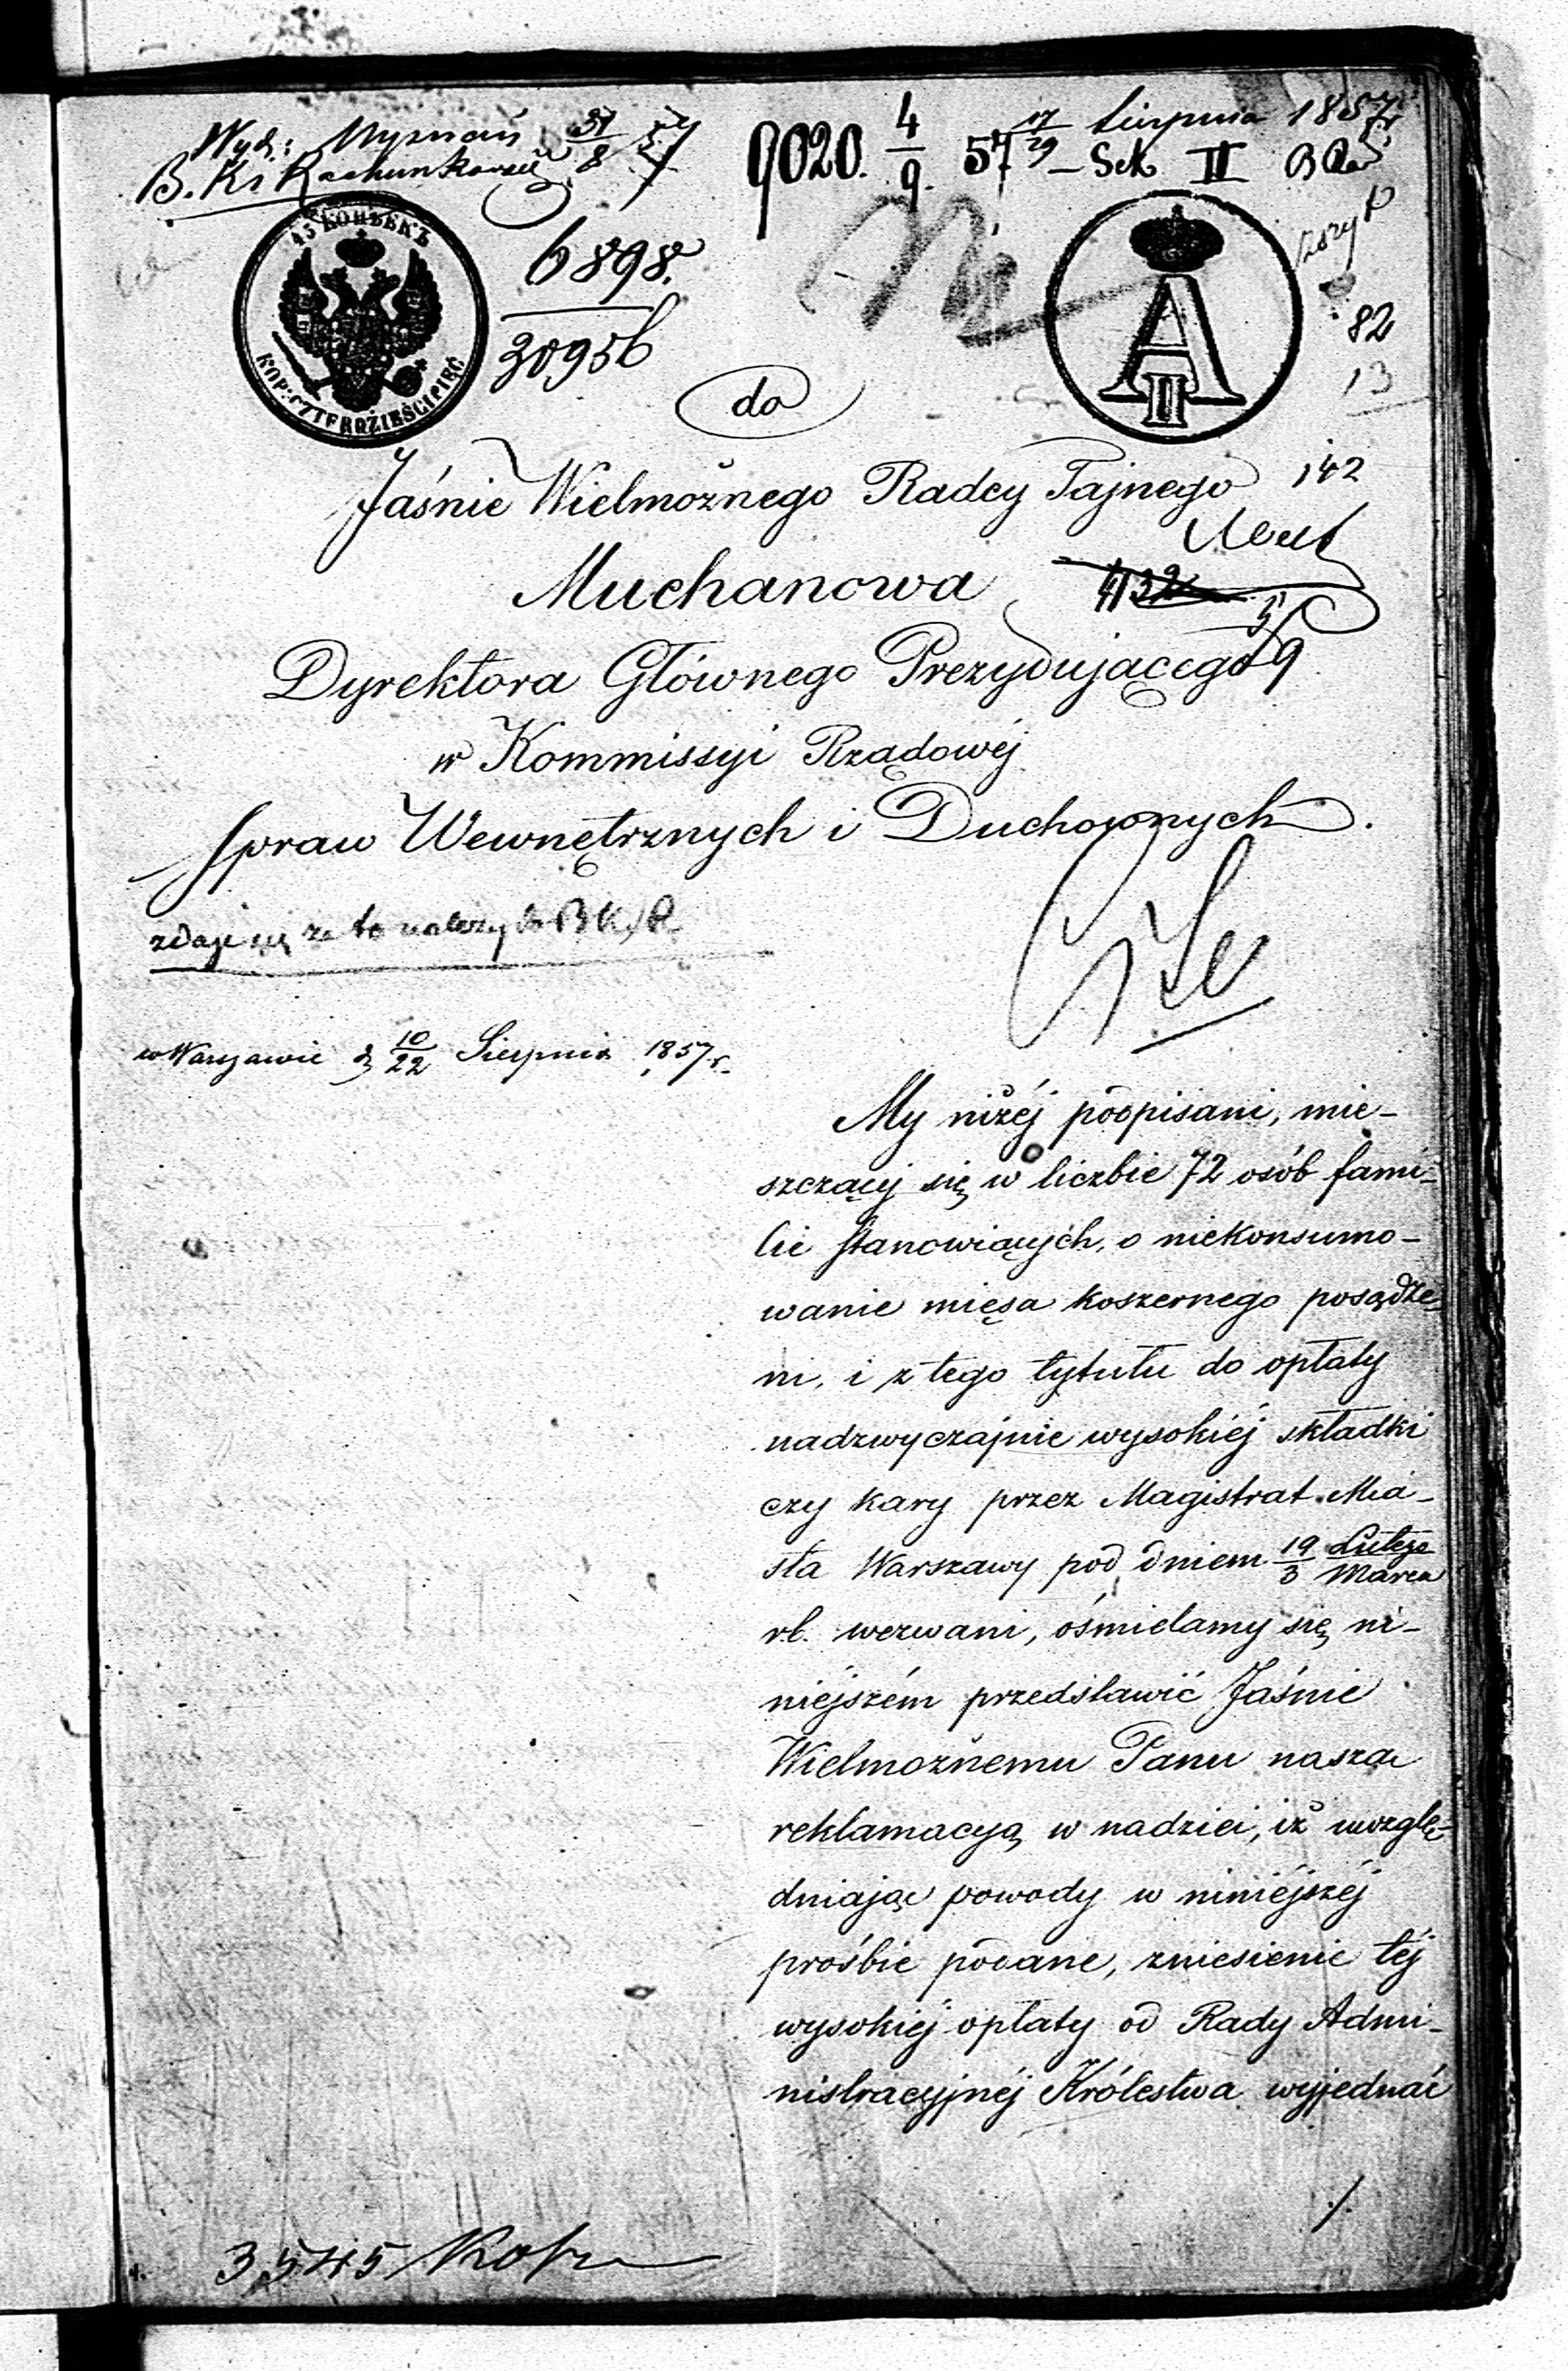 17/29 Sierpnia 1857r
Wyd: 31/8 57
B. K. Rachunkowéj
9020. 4/9. 57 – Sek II
45 КОПѢЕКЪ
KOP: CZTERDZIEŚCI PIĘĆ
6898.
30956
A II
82
13
do
142
Jaśnie Wielmożnego Radcy Tajnego
Muchanowa
4132
5/9
Dyrektora Głównego Prezydującego
w Kommissyi Rządowéj
Spraw Wewnętrznych i Duchownych.
zdaje się że to należy do B K R
w Warszawie d 10/22 Sierpnia 1857 r.
My niżéj podpisani, mie-
szczący się w liczbie 72 osób fami-
lie stanowiących, o niekonsumo-
wanie mięsa koszernego posądze-
ni, i z tego tytułu do opłaty
nadzwyczajnie wysokiéj składki
czy kary przez Magistrat Mia-
sta Warszawy pod dniem 19 Lutego / 3 Marca
r.b. wezwani, ośmielamy się ni-
niejszém przedstawić Jaśnie
Wielmożnemu Panu naszą
reklamacyą w nadziei, iż uwzglę-
dniając powody w niniéjszéj
prośbie podane, zniesienie téj
wysokiéj opłaty od Rady Admi-
nistracyjnéj Królestwa wyjednać
./.
3545